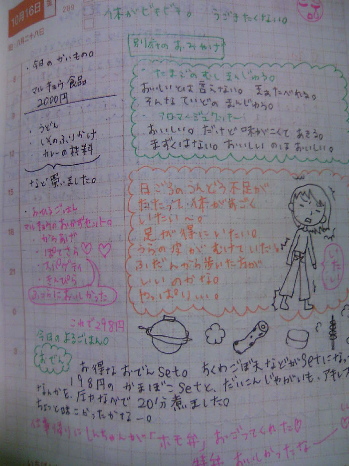 10月16日
体がビキビキ。うごきたくない。
別府のおみやげ
・たまごのむしまんじゅう。
おいしいとは言えない。まぁたべれる。
そんなていどのまんじゅう。
おいしいい。だけど味がこくてあきる。
まずくはない。おいしいのはおいしい。
・今日のかいもの。
マルキョウ食品
2000円
・うどん
・しそのふりかけ
・カレーの材料
など買いました。
日ごろのうんどう不足が
たたって、体がすごく
いたい〜。
足が特にいたい。
うらの皮がむけていたい。
ふだんから歩いた方が
いいのかな。
やっぱりぃぃ。
いたい
からあげ
スパゲティ
きんぴら
おいしかった
これで298円
今日のよるごはん。
おでん
お得なおでんSet。ちくわ、ごぼ天などがSetになっ
198円のかまぼこSetと、だいこん、じゃがいも、アキレス
なんかを、圧力なべで20分煮ました。
ちょっと味こかったかなー。
仕事帰りに しんちゃんが「ホモ弁」おごってくれた♡